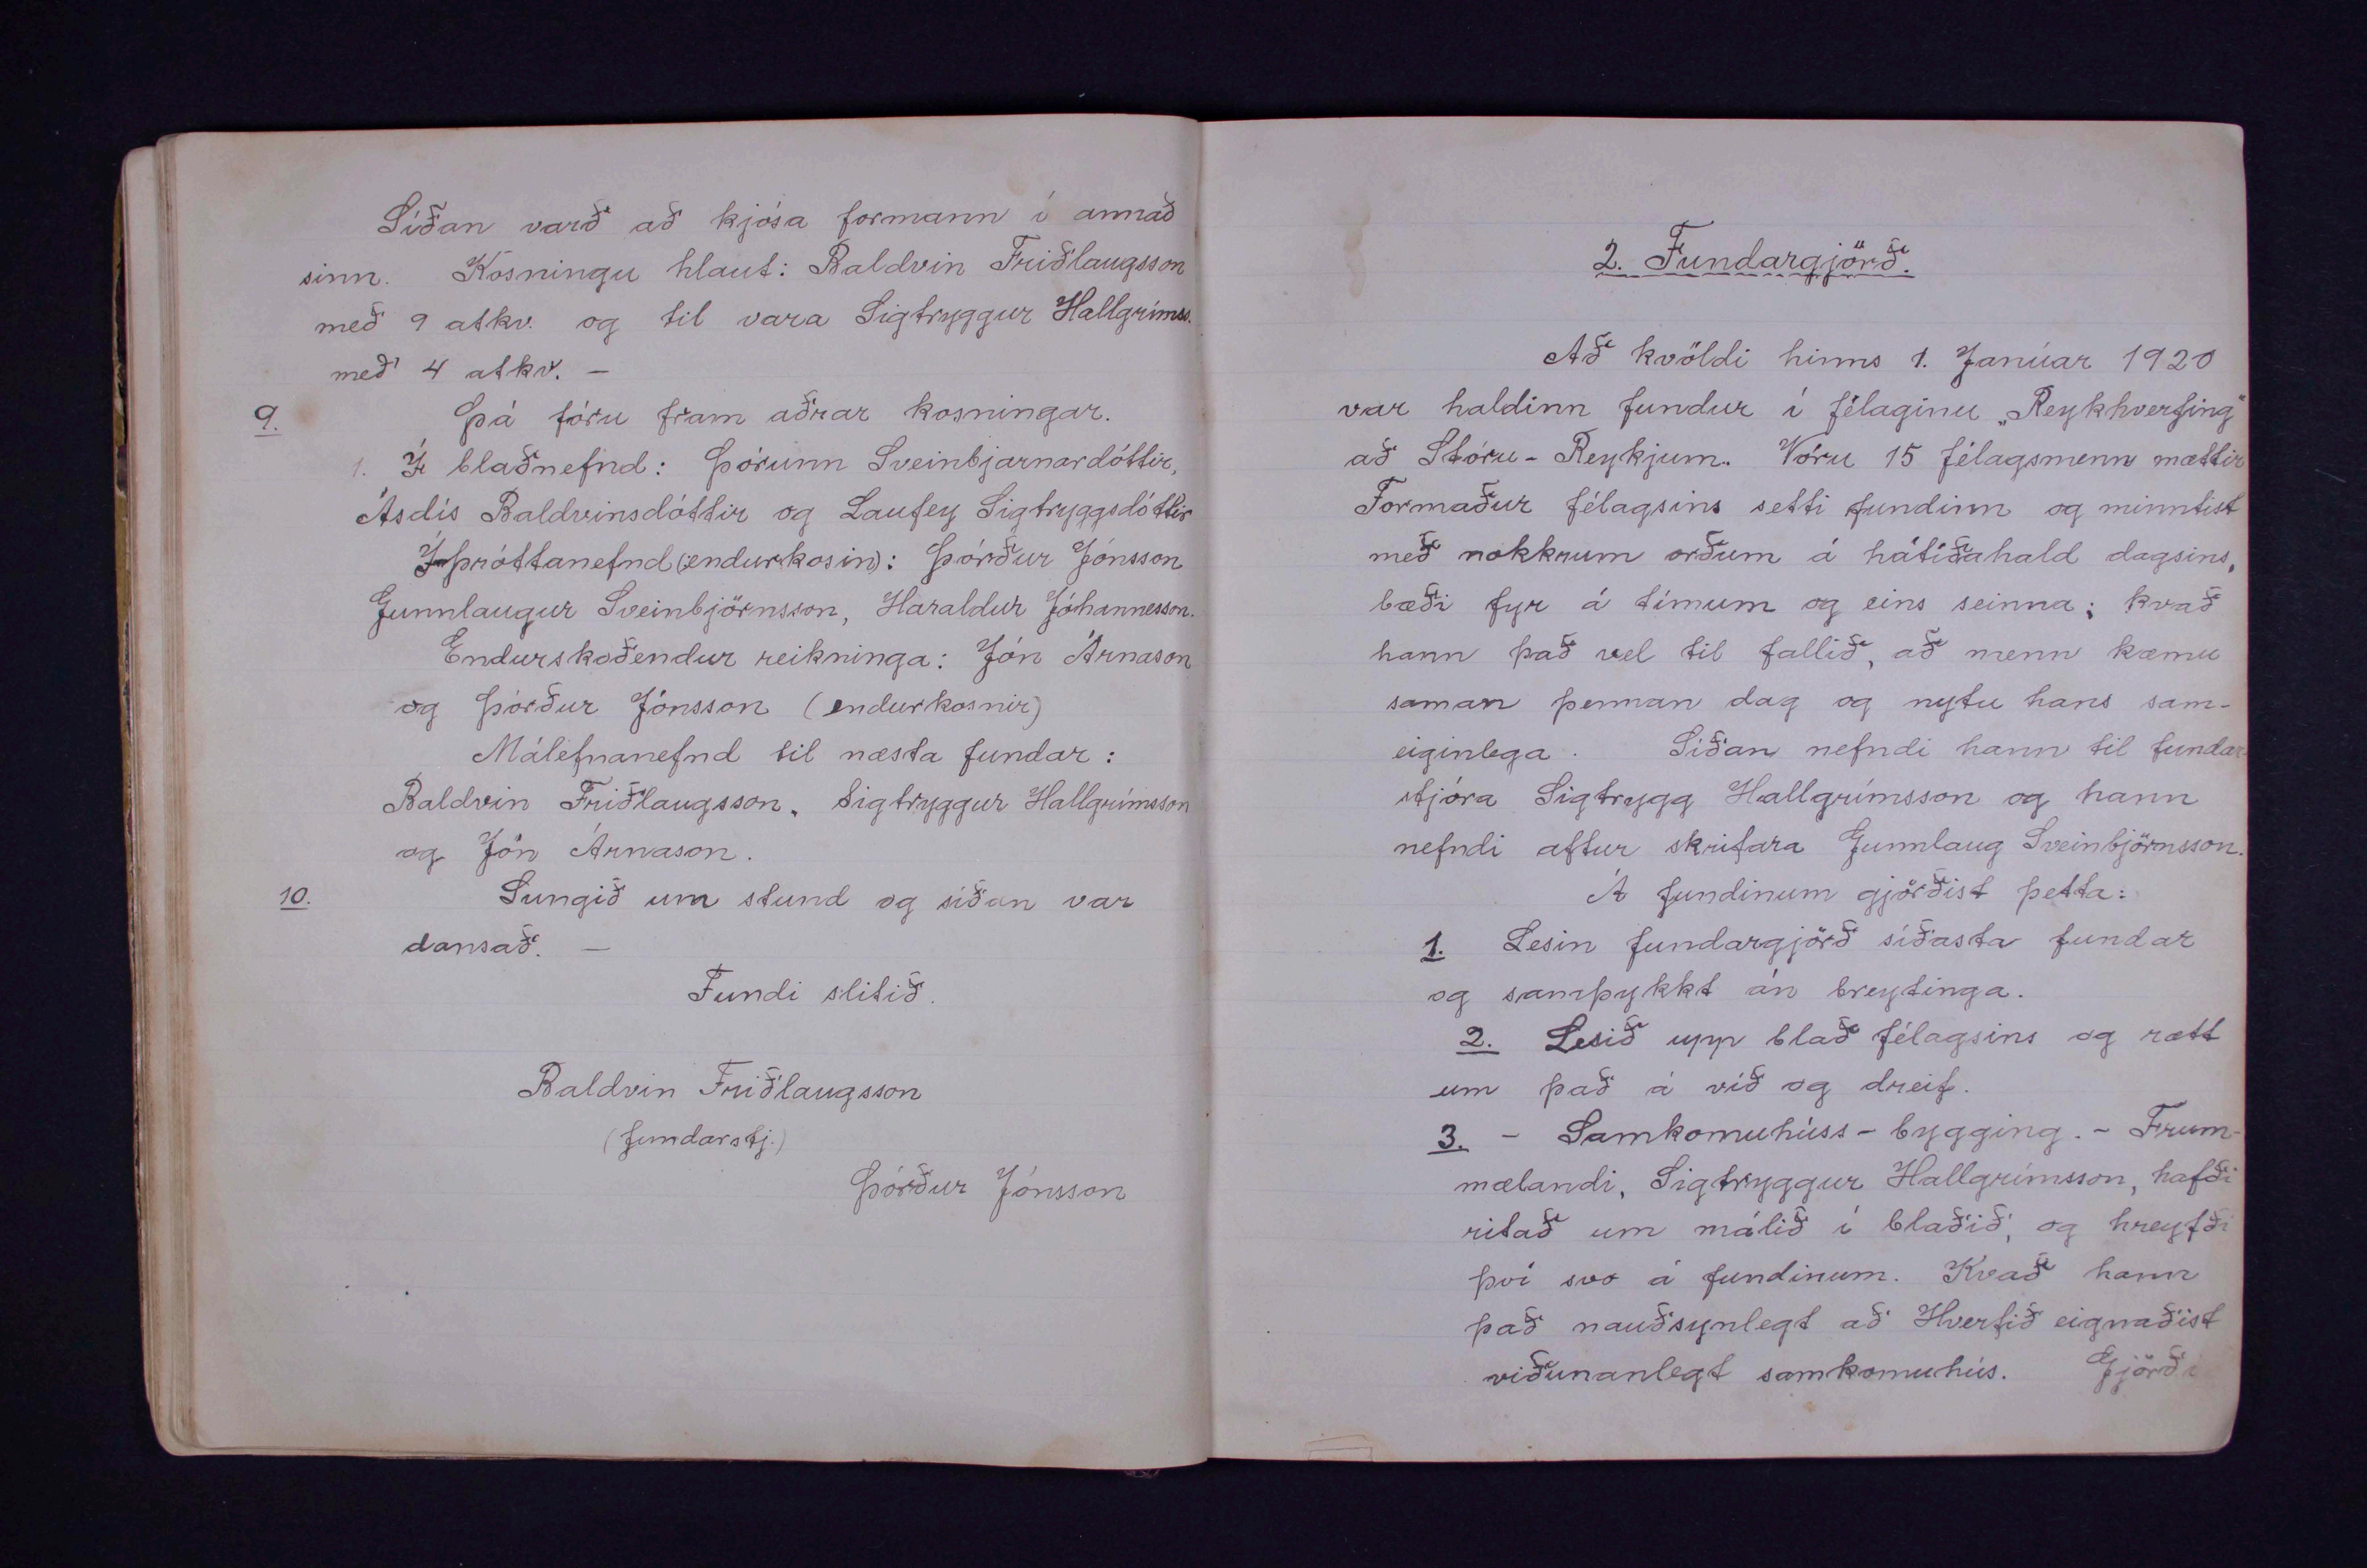 Síðan varð að kjósa formann í annað
sinn. Kosningu hlaut: Baldvin Friðlaugsson
með 9 atkv. og til vara Sigtryggur Hallgrímss.
með 4 atkv. –
9. Þá fóru fram aðrar kosningar.
1. Í blaðnefnd: Þórunn Sveinbjarnardóttir,
Ásdís Baldvinsdóttir og Laufey Sigtryggsdóttir
Íþróttanefnd (endurkosin): Þórður Jónsson
Gunnlaugur Sveinbjörnsson, Haraldur Jóhannesson.
Endurskoðendur reikninga: Jón Árnason
og Þórður Jónsson (endurkosnir)
Málefnanefnd til næsta fundar:
Baldvin Friðlaugsson, Sigtryggur Hallgrímsson
og Jón Árnason.
10. Sungið um stund og síðan var
dansað. –
Fundi slitið.
Baldvin Friðlaugsson
(fundarstj.)
Þórður Jónsson
2. Fundargjörð.
Að kvöldi hinns 1. Janúar 1920
var haldinn fundur í félaginu „Reykhverfing“
að Stóru-Reykjum. Vóru 15 félagsmenn mættir
Formaður félagsins setti fundinn og minntist
með nokkrum orðum á hátíðahald dagsins,
bæði fyr á tímum og eins seinna; kvað
hann það vel til fallið, að menn kæmu
saman þennan dag og nytu hans sam-
eiginlega. Síðan nefndi hann til fundar-
stjóra Sigtrygg Hallgrímsson og hann
nefndi aftur skrifara Gunnlaug Sveinbjörnsson.
Á fundinum gjörðist þetta:
1. Lesin fundargjörð síðasta fundar
og samþykkt án breytinga.
2. Lesið upp blað félagsins og rætt
um það á við og dreif.
3. – Samkomuhúss-bygging. – Frum-
mælandi, Sigtryggur Hallgrímsson, hafði
ritað um málið í blaðið, og hreyfði
því svo á fundinum. Kvað hann
það nauðsynlegt að Hverfið eignaðist
viðunanlegt samkomuhús. Gjörði